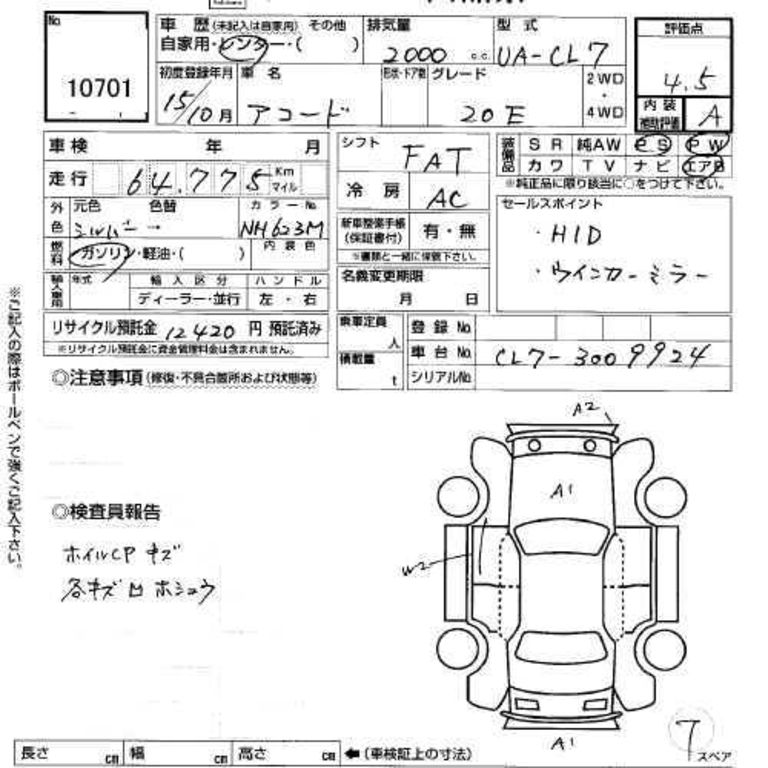 No 10701
車歴 (未記入は自家用) その他
自家用・レンタ・( )
排気量 2000 c.c.
型式 UA-CL7
評価点 4.5
内装補助評価 A
初度登録年月 15/10月
車名 アコード
形状・ドア数
グレード 20E
2WD・4WD
車検 年 月
走行 64,775 Km マイル
シフト FAT
冷房 AC
装備品 SR 純AW PS PW
カワ TV ナビ エアB
※純正品に限り該当に○をつけて下さい。
外色 元色 シルバー 色替 →
カラーNo. NH623M
燃料 ガソリン・軽油・( )
内装色
新車整備手帳(保証書付) 有・無
※書類と一緒に保管下さい。
セールスポイント
・HID
・ウインカーミラー
輸入車用 年式 輸入区分 ハンドル
ディーラー・並行 左・右
名義変更期限
月 日
リサイクル預託金 12420 円 預託済み
※リサイクル預託金に資金管理料金は含まれません。
乗車定員 人
積載量 t
登録No.
車台No. CL7-3009924
シリアルNo.
◎注意事項(修復・不具合箇所および状態等)
※ご記入の際はボールペンで強くご記入下さい。
A2
A1
◎検査員報告
ホイルCP キズ
各キズ凹ホシュウ
W2
A1
7
スペア
長さ cm 幅 cm 高さ cm ←(車検証上の寸法)